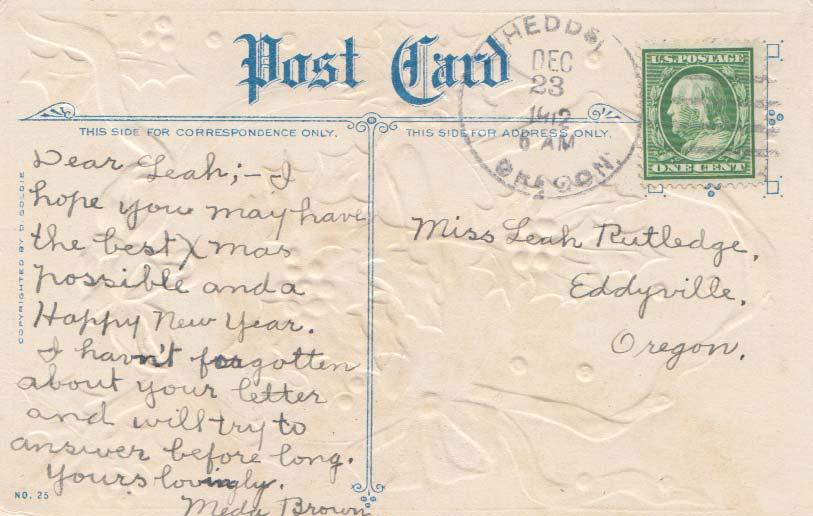 Post Card
THIS SIDE FOR CORRESPONDENCE ONLY.
THIS SIDE FOR ADDRESS ONLY.
HEDD
DEC
23
1912
6 AM
OREGON.
U.S. POSTAGE
ONE CENT
COPYRIGHTED BY D. GOLDIE
Dear Leah;— I
hope you may have
the best Xmas
possible and a
Happy New Year.
I havn't forgotten
about your letter
and will try to
answer before long.
Yours lovingly.
Meda Brown
Miss Leah Rutledge,
Eddyville,
Oregon.
NO. 25